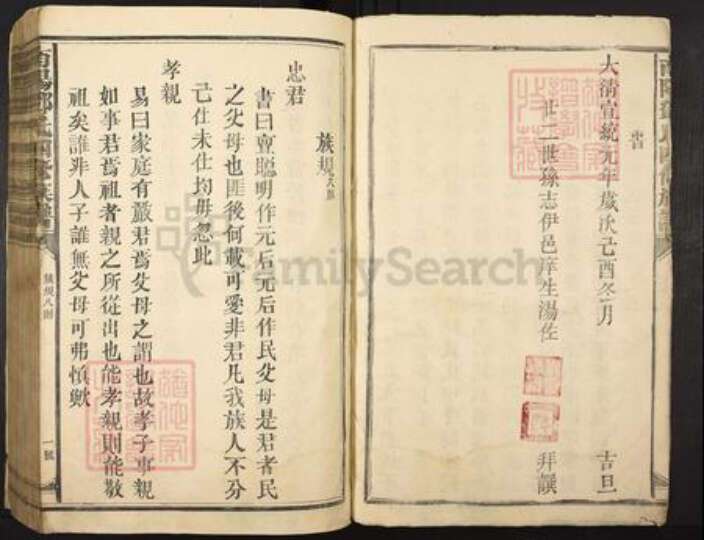 書
大清宣統元年歲次己酉冬月 吉旦
廿二世孫志伊邑庠生湯佐 拜譔
族規八則
忠君
書曰亶聰明作元后元后作民父母是君者民
之父母也匪後何戴可愛非君凡我族人不分
己仕未仕均毋忽此
孝親
易曰家庭有嚴君焉父母之謂也故孝子事親
如事君焉祖者親之所從出也能孝親則能敬
祖矣誰非人子誰無父母可弗慎歟
族規八則
一號
FamilySearch